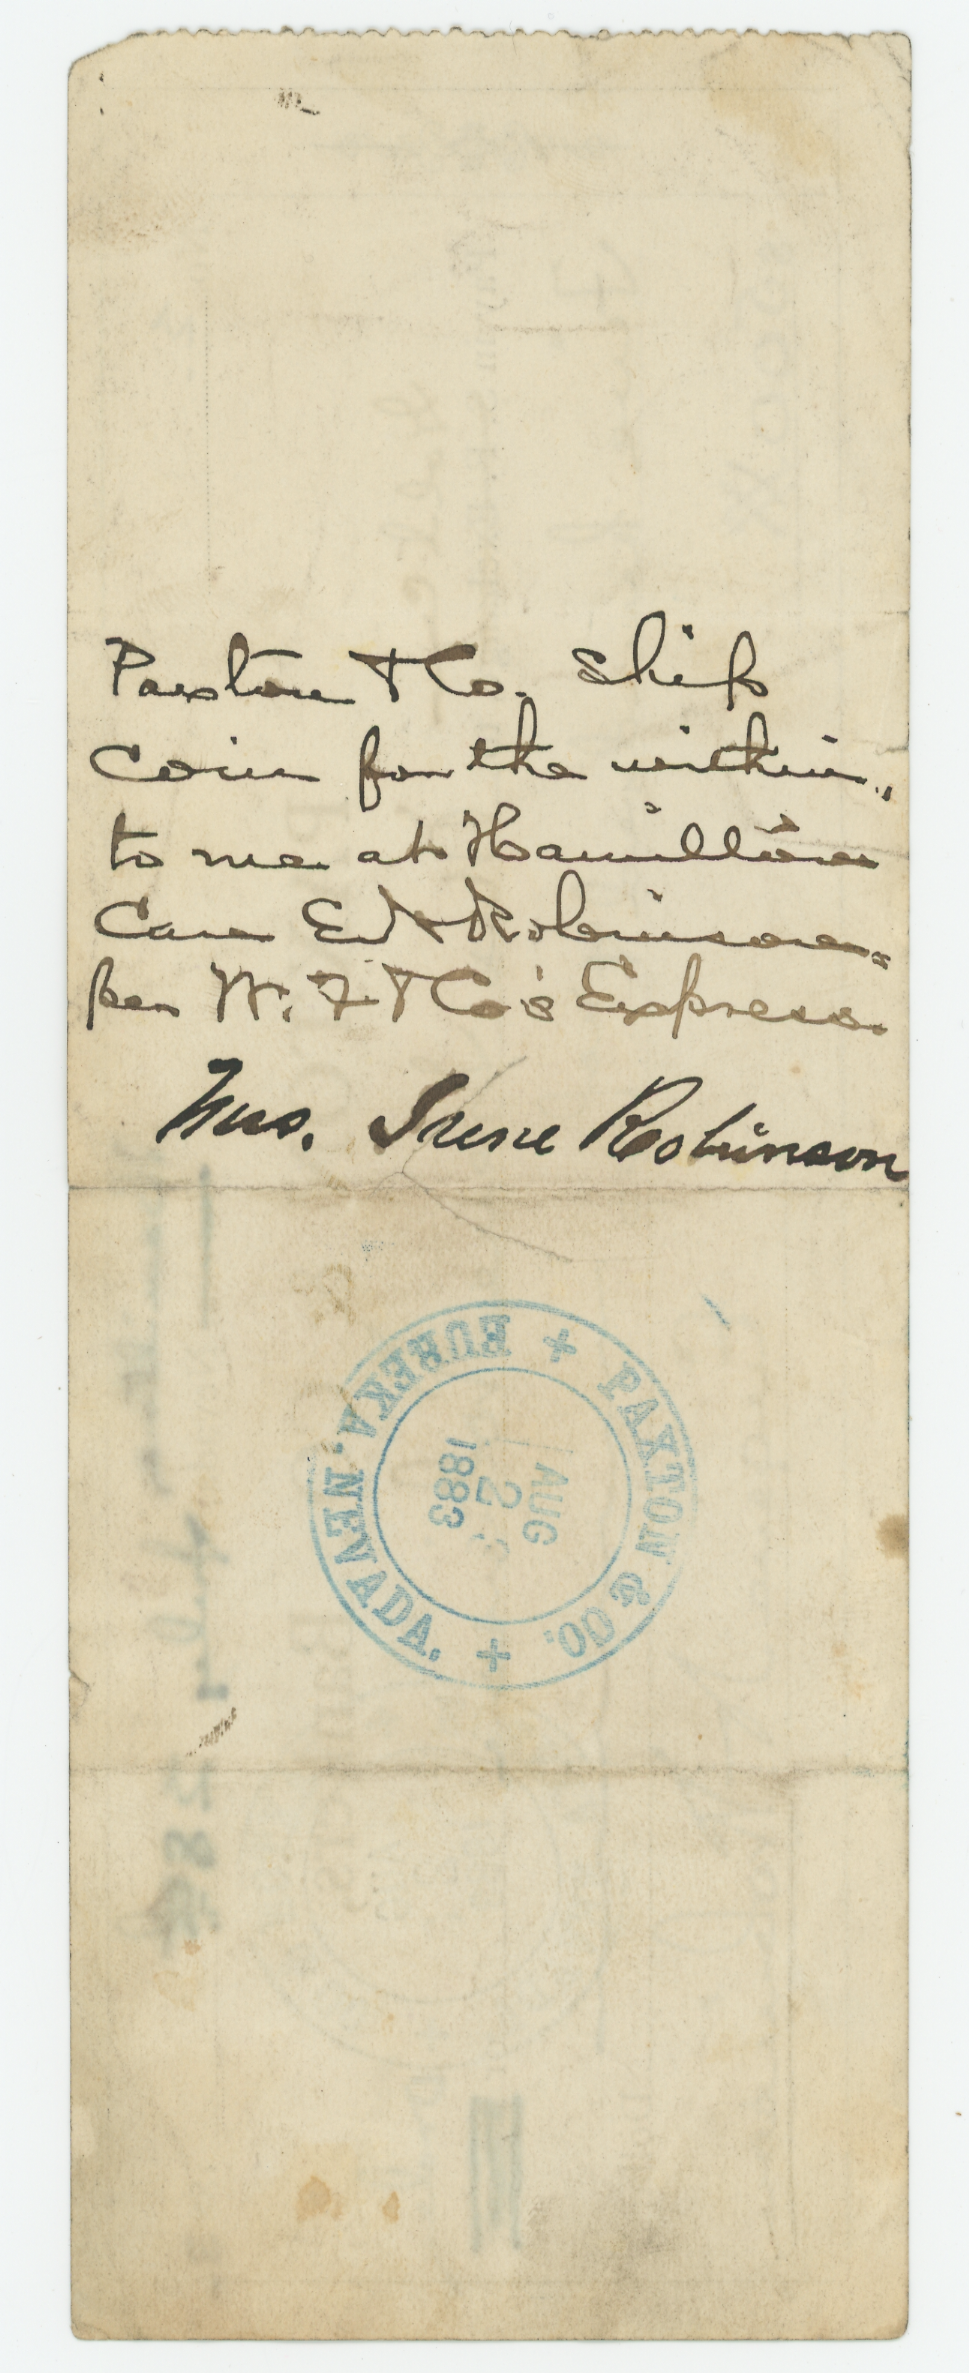 Paxton & Co. Ship
Coin for the within,
to me at Hamilton
Care E N Robinson.
per W. F & Co's Express.
Mrs. Irene Robinson
PAXTON & CO.
EUREKA, NEVADA.
AUG
2
1883